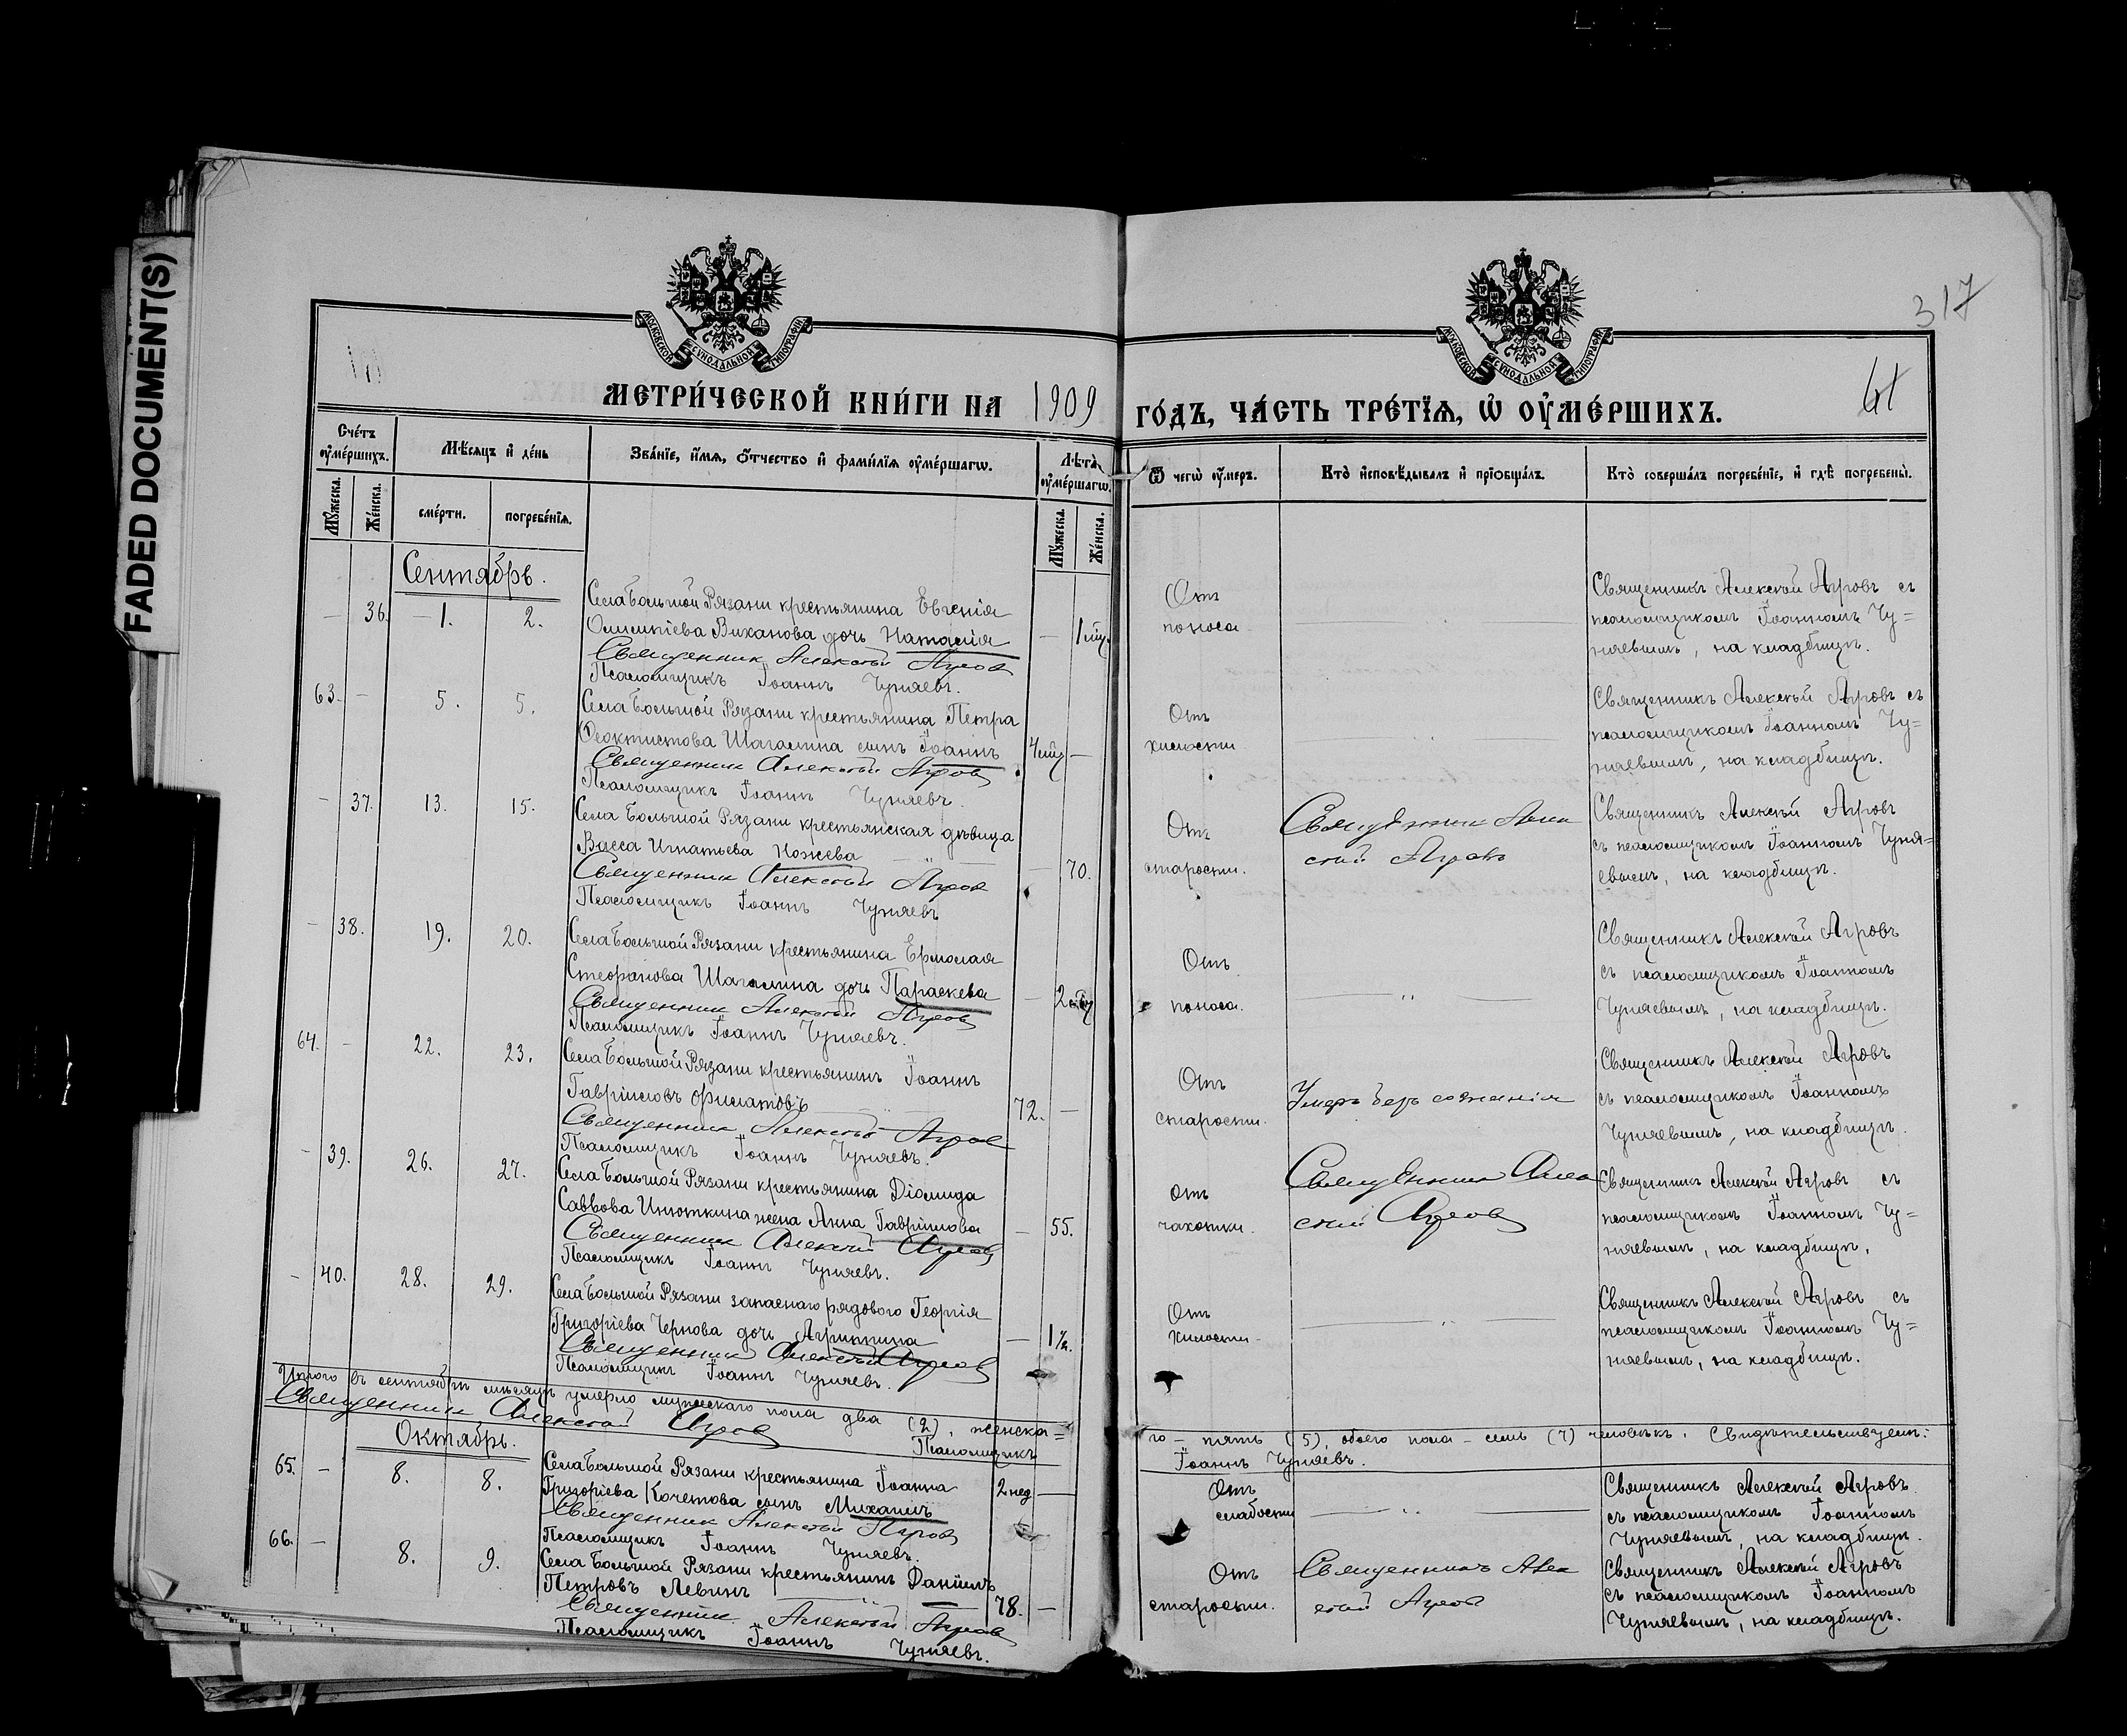 FADED DOCUMENT(S)
317
41
МОСКОВСКОЙ СѴНОДАЛЬНОЙ ТИПОГРАФІИ
МОСКОВСКОЙ СѴНОДАЛЬНОЙ ТИПОГРАФІИ
МЕТРИ́ЧЕСКОЙ КНИ́ГИ НА 1909 ГО́ДЪ, ЧА́СТЬ ТРЕ́ТЇЯ, Ѽ ОУ҆МЕ́РШИХЪ.
Сче́тъ оу҆ме́ршихъ.
Мѣ́сяцъ и҆ де́нь
Зва́нїе, и҆́мя, ѻ҆́тчество и҆ фами́лїя оу҆ме́ршагѡ.
Лѣ́та оу҆ме́ршагѡ.
Ѿ чегѡ̀ оу҆́меръ.
Кто̀ и҆сповѣ́дывалъ и҆ прїобща́лъ.
Кто̀ соверша́лъ погребе́нїе, и҆ гдѣ̀ погребены̀.
Мꙋ́жеска.
Же́нска.
сме́рти.
погребе́нїя.
Мꙋ́жеска.
Же́нска.
Сентябрь.
— 36. 1. 2.
Села Большой Рязани крестьянина Евгенія
Олимпіева Виканова дочь Наталія
— 1 мѣц.
Священник Алексѣй Агров
Псаломщикъ Іоаннъ Чуняевъ.
Отъ
поноса
Священникъ Алексѣй Агровъ съ
псаломщикомъ Іоанномъ Чу=
няевымъ, на кладбищѣ.
63. — 5. 5.
Села Большой Рязани крестьянина Петра
Феоктистова Шагалина сынъ Іоаннъ
4 мѣц —
Священник Алексѣй Агров
Псаломщикъ Іоаннъ Чуняевъ.
Отъ
хилости
Священникъ Алексѣй Агровъ съ
псаломщикомъ Іоанномъ Чу=
няевымъ, на кладбищѣ.
— 37. 13. 15.
Села Большой Рязани крестьянская дѣвица
Васса Игнатьева Ножева
— 70.
Священник Алексѣй Агров
Псаломщикъ Іоаннъ Чуняевъ
Отъ
старости.
Священник Алек
сѣй Агровъ
Священникъ Алексѣй Агровъ
съ псаломщикомъ Іоанномъ Чуня=
евымъ, на кладбищѣ.
— 38. 19. 20.
Села Большой Рязани крестьянина Ермолая
Стефанова Шагалина дочь Параскева
2 мѣц
Священник Алексѣй Агров
Псаломщикъ Іоаннъ Чуняевъ.
Отъ
поноса.
Священникъ Алексѣй Агровъ
съ псаломщикомъ Іоанномъ
Чуняевымъ, на кладбищѣ.
64. — 22. 23.
Села Большой Рязани крестьянинъ Іоаннъ
Гавріиловъ Филатовъ
72. —
Священник Алексѣй Агров
Псаломщикъ Іоаннъ Чуняевъ.
Отъ
старости.
Умеръ безъ сознанія
Священникъ Алексѣй Агровъ
съ псаломщикомъ Іоанномъ
Чуняевымъ, на кладбищѣ.
— 39. 26. 27.
Села Большой Рязани крестьянина Діомида
Саввова Инюткина жена Анна Гавріилова
— 55.
Священник Алексѣй Агров
Псаломщикъ Іоаннъ Чуняевъ.
отъ
чахотки.
Священник Алек
сѣй Агров
Священникъ Алексѣй Агровъ съ
псаломщикомъ Іоанномъ Чу=
няевымъ, на кладбищѣ.
— 40. 28. 29.
Села Большой Рязани запаснаго рядового Георгія
Григоріева Чернова дочь Агриппина
— 1½.
Священник Алексѣй Агров
Псаломщикъ Іоаннъ Чуняевъ.
Отъ
хилости.
Священникъ Алексѣй Агровъ съ
псаломщикомъ Іоанномъ Чу=
няевымъ, на кладбищѣ.
Итого въ сентябрѣ мѣсяцѣ умерло мужескаго пола два (2), женска=
го — пять (5), обоего пола — семь (7) человѣкъ. Свидѣтельствуемъ:
Священник Алексѣй Агров
Псаломщикъ Іоаннъ Чуняевъ.
Октябрь.
65. — 8. 8.
Села Большой Рязани крестьянина Іоанна
Григоріева Кочетова сынъ Михаилъ
2 нед —
Священник Алексѣй Агров
Псаломщикъ Іоаннъ Чуняевъ.
Отъ
слабости
Священникъ Алексѣй Агровъ
съ псаломщикомъ Іоанномъ
Чуняевымъ, на кладбищѣ.
66. — 8. 9.
Села Большой Рязани крестьянинъ Даніилъ
Петровъ Левинъ
78. —
Священник Алексѣй Агров
Псаломщикъ Іоаннъ Чуняевъ.
Отъ
старости.
Священникъ Алек
сѣй Агров
Священникъ Алексѣй Агровъ
съ псаломщикомъ Іоанномъ
Чуняевымъ, на кладбищѣ.